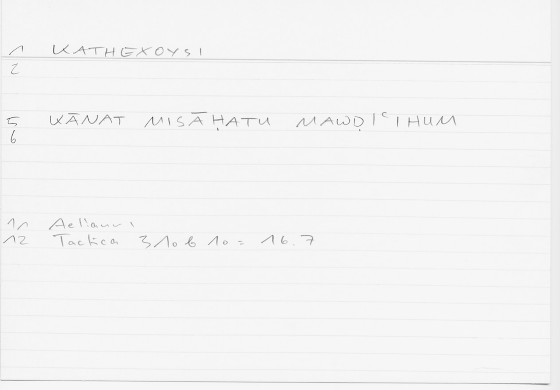 1 KATHEXOYSI
2
5 KĀNAT MISĀḤATU MAWḌIʿIHUM
6
11 Aelianus
12 Tactica 310b10 = 16.7